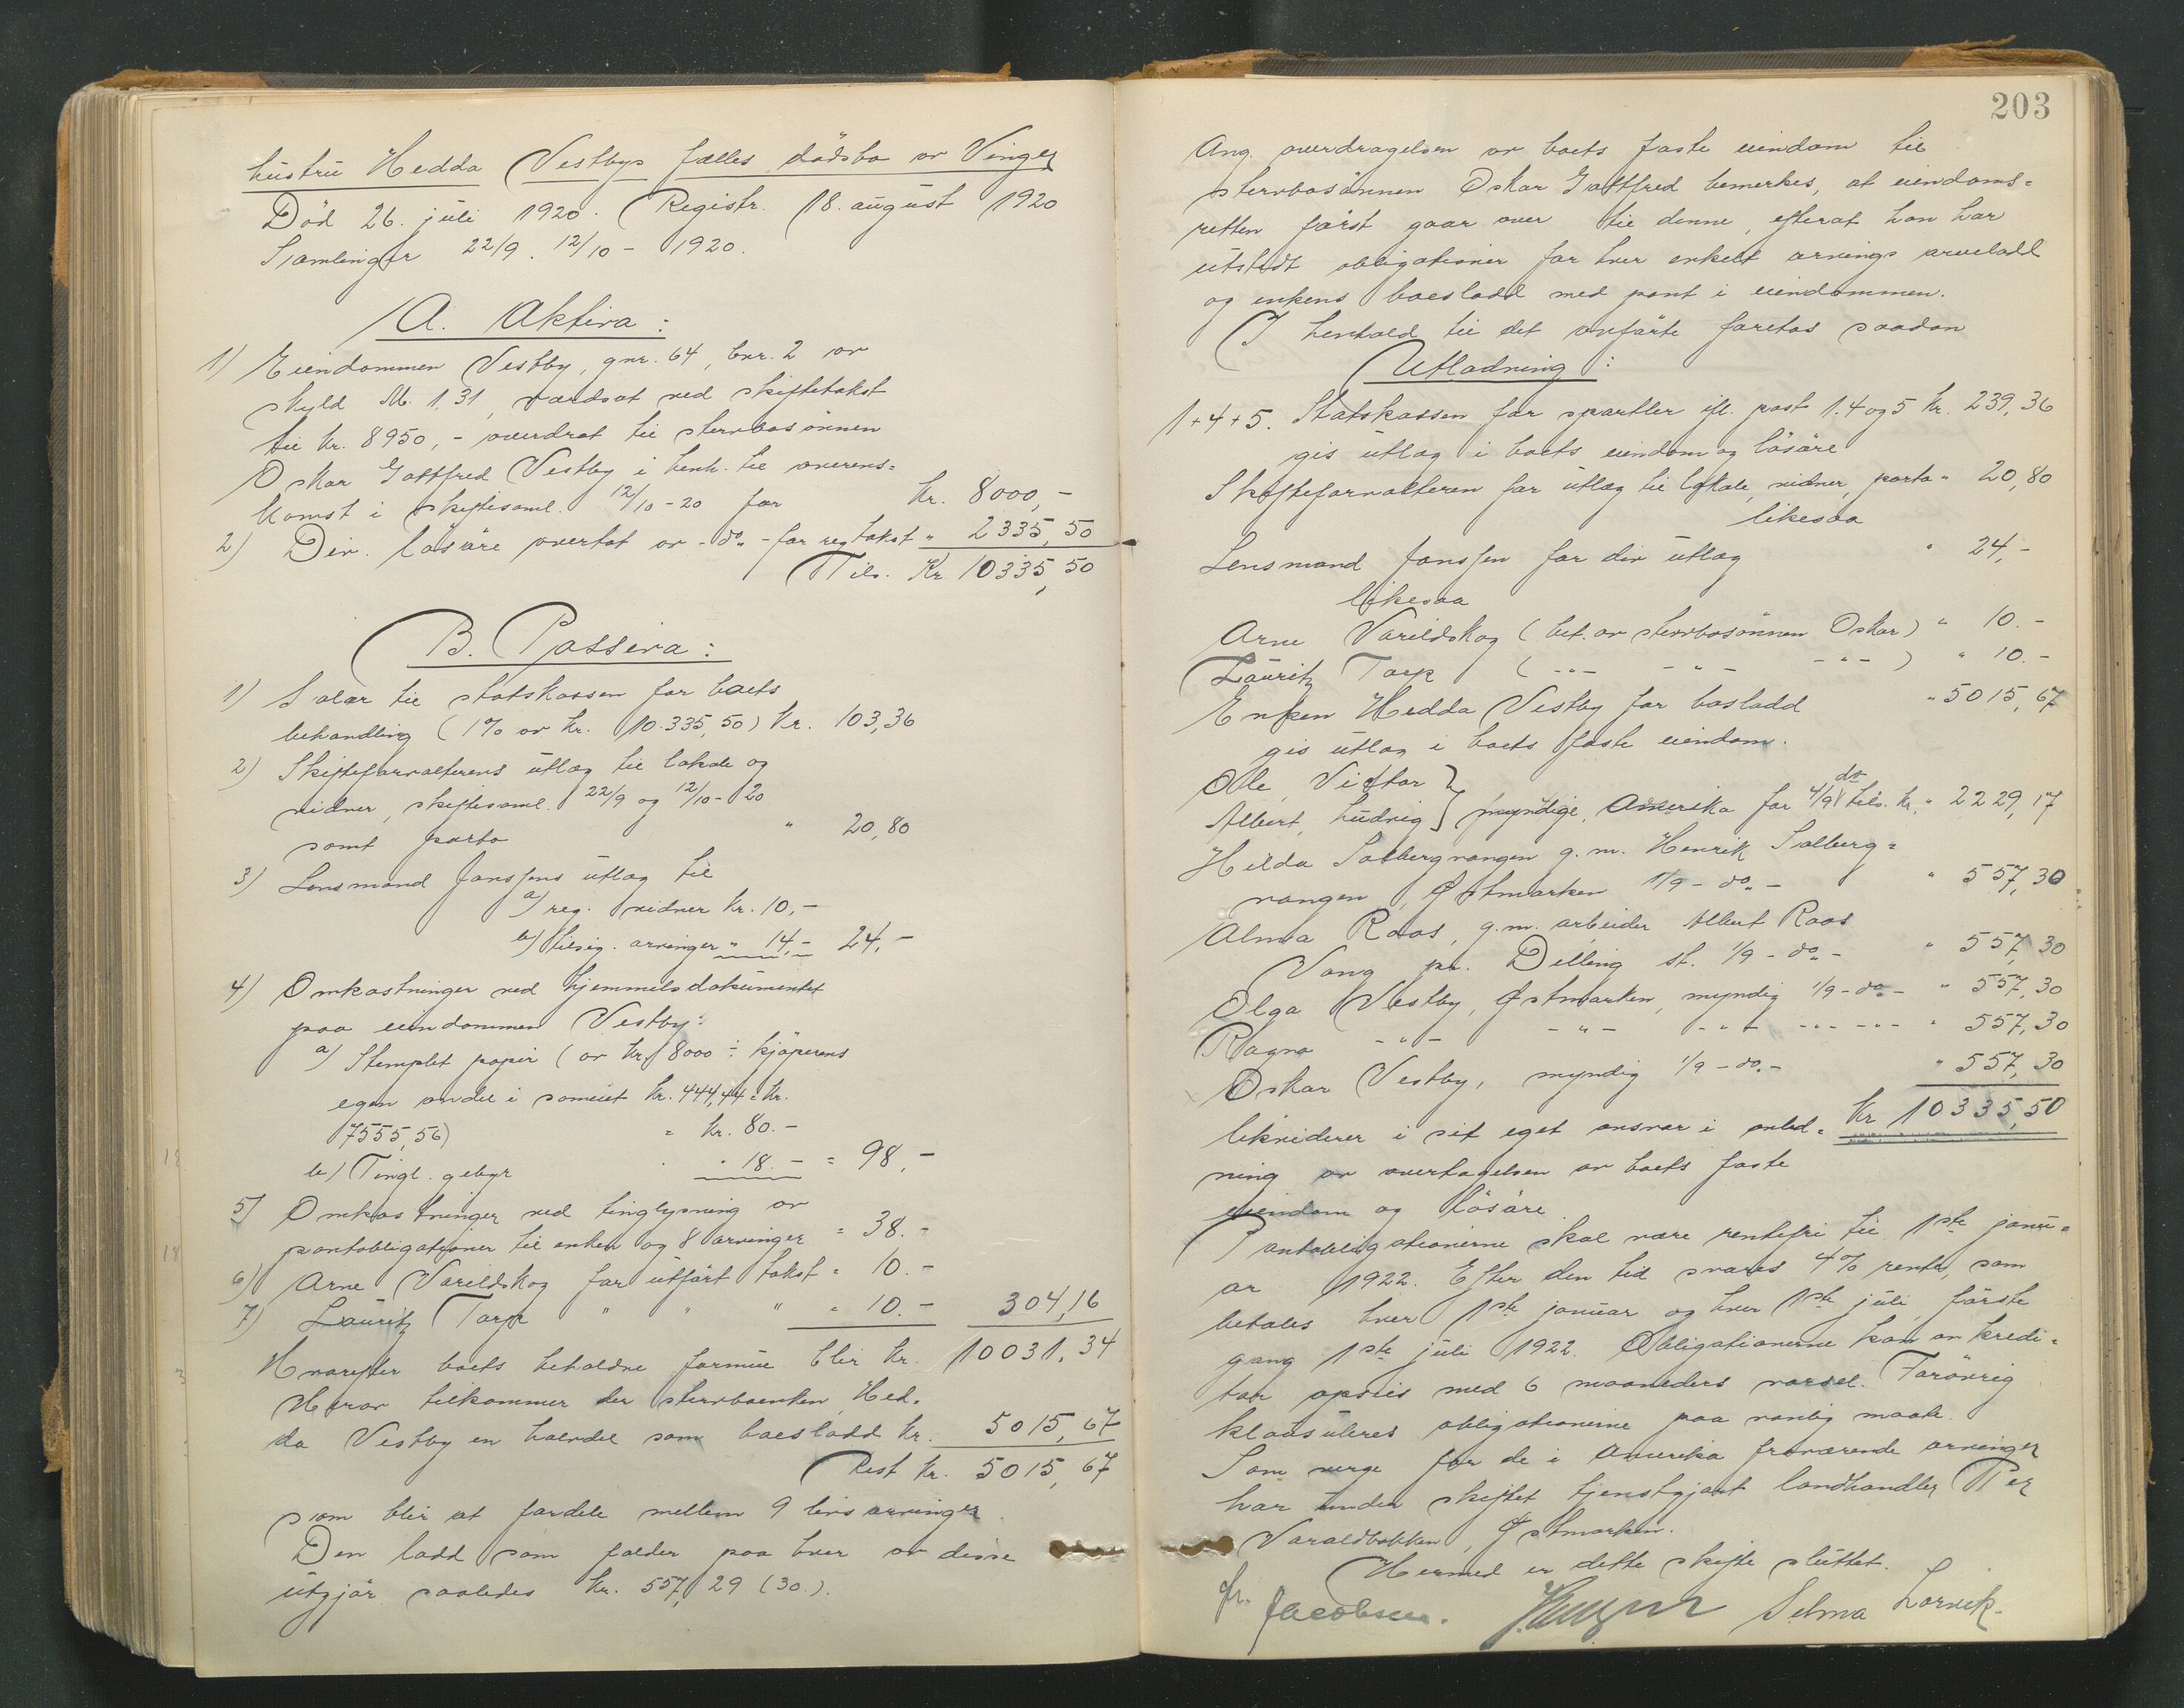 hustru Hedda Vestbys fælles dödsbo av Vinger
Död 26. juli 1920. Registr. 18. august 1920
Samlinger 22/9. 12/10 - 1920.
A. Aktiva:
1) Eiendommen Vestby, gnr. 64, bnr. 2 av
skyld M. 1,31, værdsat ved skiftetakst
til kr. 8950,- overdrat til stervbosönnen
Oskar Gottfred Vestby i henh. til overens=
komst i skiftesaml. 12/10-20 for kr. 8000,-
2) Div. lösöre overtat av -do.- for reg takst " 2335,50
Tils. Kr. 10335,50
B. Passiva:
1) Salær til statskassen for boets
behandling (1% av kr. 10.335,50) kr. 103,36
2) Skifteforvalterens utlæg til lokale og
vidner, skiftesaml. 22/9 og 12/10-20
samt porto " 20,80
3) Lensmand Janssens utlæg til
a) reg. vidner kr. 10,-
b) tilsig. arvinger " 14,- 24,-
4) Omkostninger ved hjemmelsdokumentet
paa eiendommen Vestby:
a) Stemplet papir (av kr. 8000 ÷ kjöperens
egen andel i sameiet kr. 444,44 = kr.
7555,56) = kr. 80.-
b) Tingl. gebyr " 18.- = 98,-
5) Omkostninger ved tinglysning av
pantobligationer til enken og 8 arvinger = 38.-
6) Arne Varildskog for utfört takst = 10.-
7) Lauritz Torp " " " " 10.- 304,16
Hvorefter boets beholdne formue blir kr. 10031,34
Herav tilkommer der stervboenken Hed=
da Vestby en halvdel som boeslodd kr. 5015,67
Rest kr. 5015,67
som blir at fordele mellem 9 livsarvinger.
Den lodd som falder paa hver av disse
utgjör saaledes kr. 557,29 (30.).
203
Ang. overdragelsen av boets faste eiendom til
stervbosönnen Oskar Gottfred bemerkes, at eiendoms=
retten först gaar over til denne, efterat han har
utstedt obligationer for hver enkelt arvings arvelodd
og enkens boeslodd med pant i eiendommen.
I henhold til det anförte foretas saadan
Utlodning:
1+4+5. Statskassen for sportler ifl. post 1. 4 og 5 kr. 239,36
gis utlæg i boets eiendom og lösöre
Skifteforvalteren for utlæg til lokale, vidner, porto " 20,80
likesaa
Lensmand Janssen for div utlæg " 24,-
likesaa
Arne Varildskog (bet. av stervbosönnen Oskar) " 10.-
Lauritz Torp ( -"- -"- -"- ) " 10.-
Enken Hedda Vestby for boslodd " 5015,67
gis utlæg i boets faste eiendom.
Ole, Viktor
Albert, Ludvig } myndige, Amerika for 4/9 do tils. kr. " 2229,17
Hilda Solbergvangen g. m. Henrik Solberg=
vangen, Østmarken 1/9 - do.- " 557,30
Alma Roos, g. m. arbeider Albert Roos
Vang pr. Dilling st. 1/9 - do.- " 557,30
Olga Vestby, Østmarken, myndig 1/9 - do.- " 557,30
Ragna -"- -"- -"- -"- -"- " 557,30
Oskar Vestby, myndig 1/9 - do.- " 557,30
likviderer i sit eget ansvar i anled= Kr 10335,50
ning av overtagelsen av boets faste
eiendom og lösöre.
Pantobligationerne skal være rentefri til 1ste janu=
ar 1922. Efter den tid svares 4% rente, som
betales hver 1ste januar og hver 1ste juli, förste
gang 1ste juli 1922. Obligationerne kan av kredi=
tor opsies med 6 maaneders varsel. Forövrig
klausuleres obligationerne paa vanlig maate.
Som verge for de i Amerika fraværende arvinger
har under skiftet tjenstgjort landhandler Per
Varaldbakken, Østmarken.
Hermed er dette skifte sluttet.
Fr. Jacobsen. Selma Larvik.